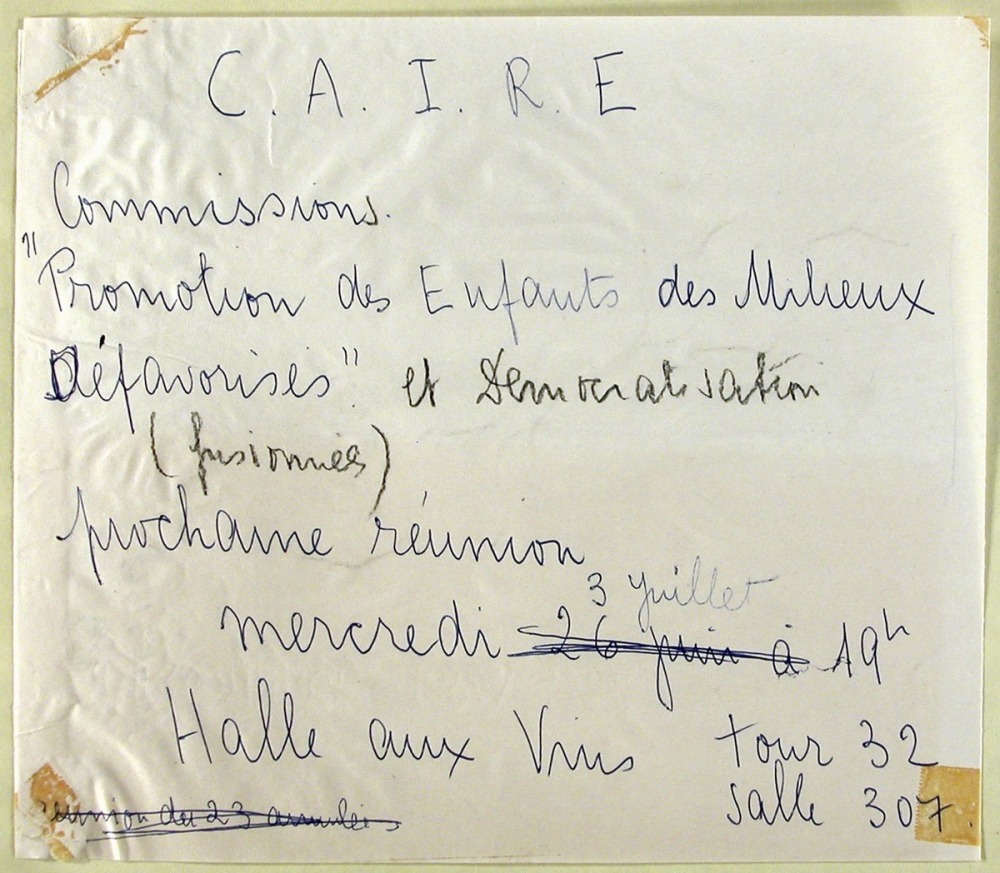 C. A. I. R. E
Commissions.
"Promotion des Enfants des Milieux
Défavorisés" et Démocratisation
(fusionnées)
prochaine réunion
3 juillet
mercredi 26 juin à 19h
Halle aux Vins tour 32
salle 307.
réunion du 23 annulée